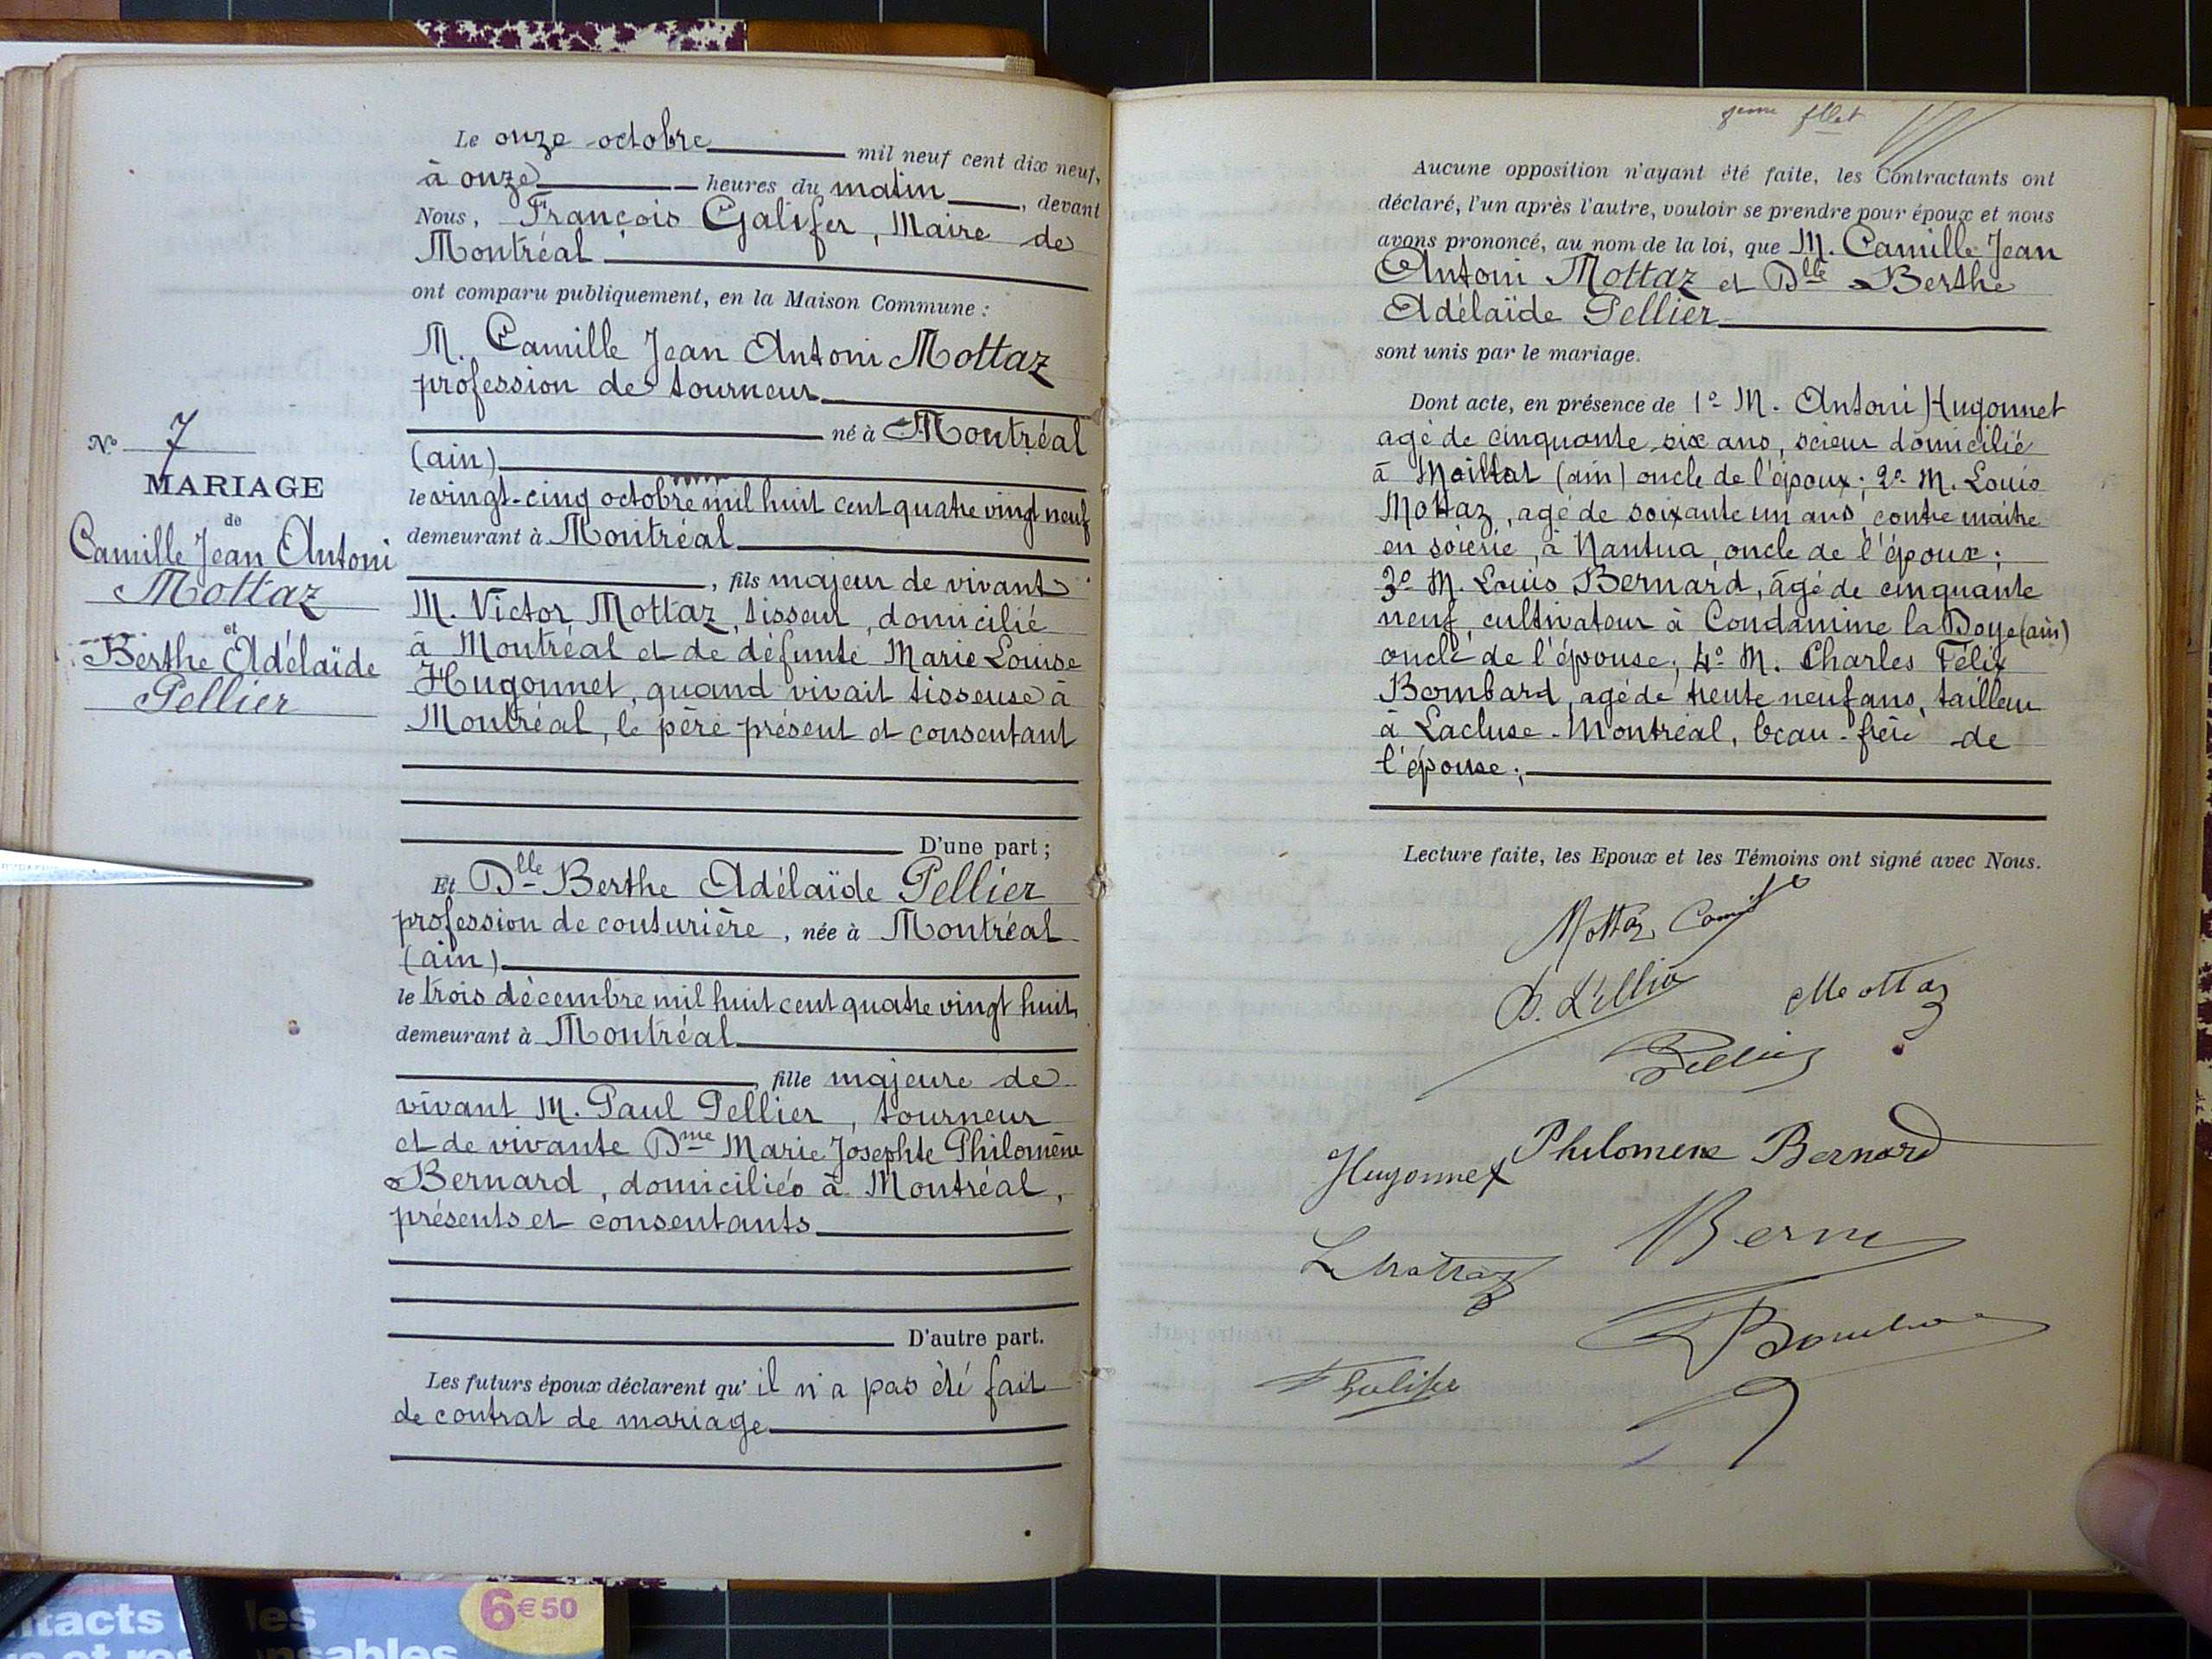 N° 7
MARIAGE
de
Camille Jean Antoni
Mottaz
et
Berthe Adélaïde
Pellier
Le onze octobre mil neuf cent dix neuf,
à onze heures du matin, devant
Nous, François Galifer, Maire de
Montréal
ont comparu publiquement, en la Maison Commune :
M. Camille Jean Antoni Mottaz
profession de tourneur
né à Montréal
(ain)
le vingt-cinq octobre mil huit cent quatre vingt neuf
demeurant à Montréal
, fils majeur de vivant
M. Victor Mottaz, tisseur, domicilié
à Montréal et de défunte Marie Louise
Hugonnet, quand vivait tisseuse à
Montréal, le père présent et consentant
D'une part ;
Et Dlle Berthe Adélaïde Pellier
profession de couturière, née à Montréal
(ain)
le trois décembre mil huit cent quatre vingt huit
demeurant à Montréal
, fille majeure de
vivant M. Paul Pellier, tourneur
et de vivante Dme Marie Josephte Philomène
Bernard, domiciliés à Montréal,
présents et consentants
D'autre part.
Les futurs époux déclarent qu' il n'a pas été fait
de contrat de mariage
Aucune opposition n'ayant été faite, les Contractants ont
déclaré, l'un après l'autre, vouloir se prendre pour époux et nous
avons prononcé, au nom de la loi, que M. Camille Jean
Antoni Mottaz et Dlle Berthe
Adélaïde Pellier
sont unis par le mariage.
Dont acte, en présence de 1° M. Antoni Hugonnet
agé de cinquante six ans, scieur domicilié
à Maillat (ain) oncle de l'époux; 2° M. Louis
Mottaz, agé de soixante un ans, contre maître
en soierie, à Nantua, oncle de l'époux;
3° M. Louis Bernard, âgé de cinquante
neuf, cultivateur à Condamine la Doye (ain)
oncle de l'épouse; 4° M. Charles Félix
Bombard, agé de trente neuf ans, tailleur
à Lacluse-Montréal, beau-frère de
l'épouse;
Lecture faite, les Epoux et les Témoins ont signé avec Nous.
Mottaz Camille
B. Pellier Mottaz
Pellier
Philomene Bernard
Hugonnet
L Mottaz
F Galifer
6€50